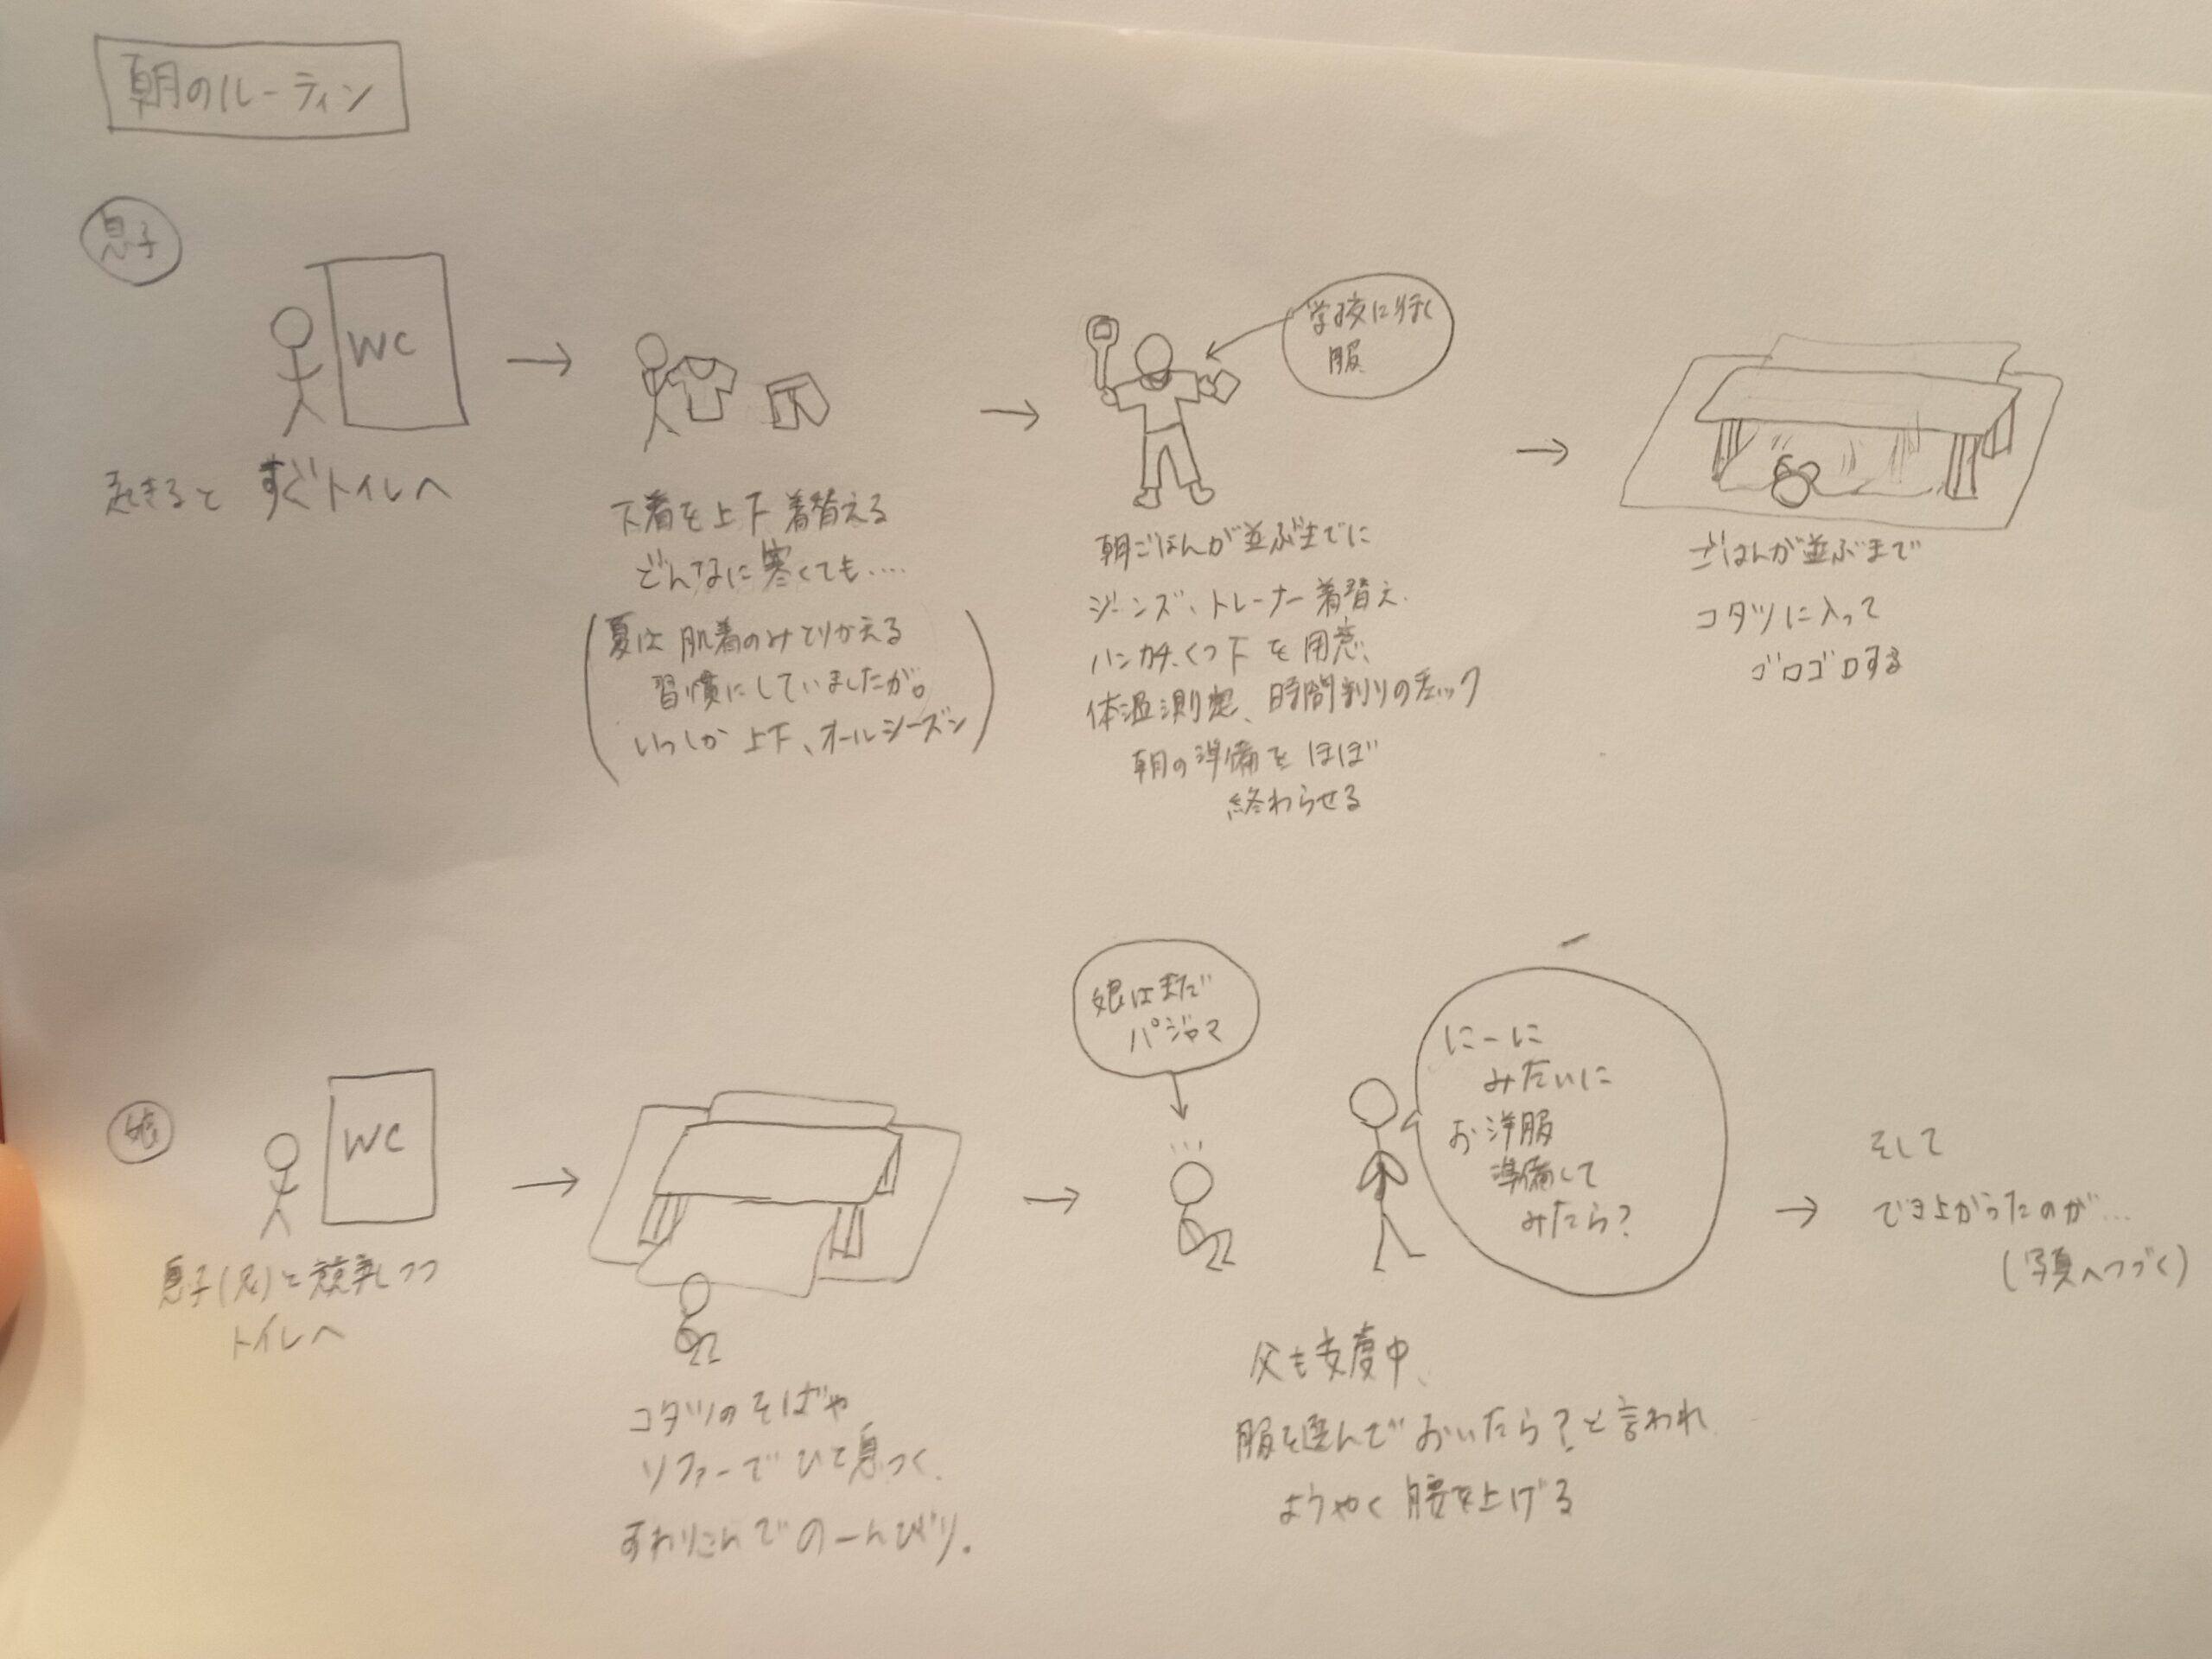 朝のルーティン
息子
WC
起きると すぐトイレへ
下着を上下着替える
どんなに寒くても….
(夏は 肌着のみとりかえる
習慣にしていましたが。
いつしか 上下、オールシーズン)
学校に行く
服
朝ごはんが並ぶまでに
ジーンズ、トレーナー着替え、
ハンカチ、くつ下を用意、
体温測定、時間割りのチェック
朝の準備をほぼ
終わらせる
ごはんが並ぶまで
コタツに入って
ゴロゴロする
娘
WC
息子(兄)と競争しつつ
トイレへ
コタツのそばや
ソファーでひと息つく、
すわりこんでのーんびり。
娘はまだ
パジャマ
にーに
みたいに
お洋服
準備して
みたら?
父も支度中、
服を選んでおいたら?と言われ
ようやく腰を上げる
そして
でき上がったのが…
(写真へつづく)